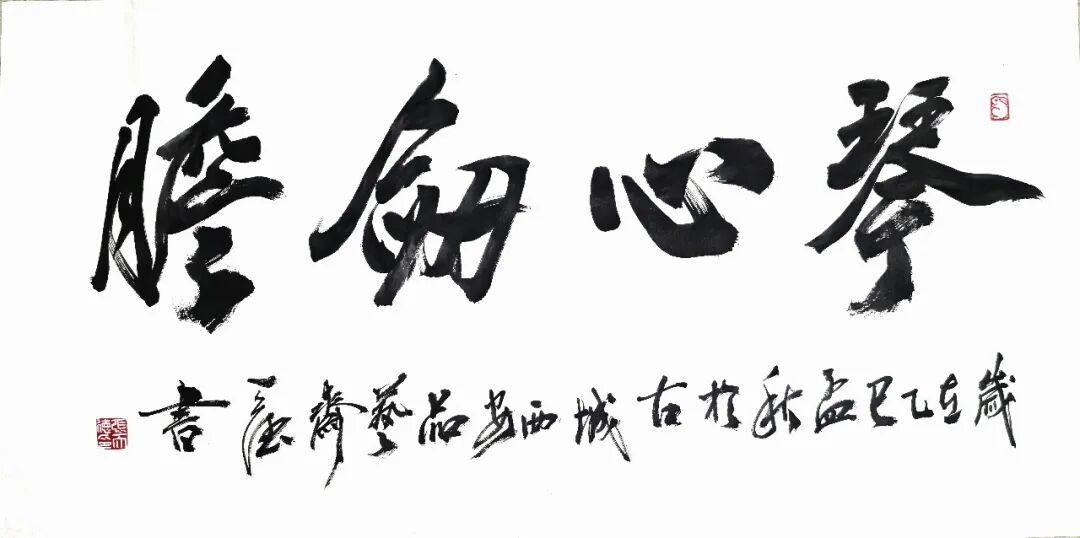 琴心劍膽
歲在乙巳孟秋於古城西安品藝齋書